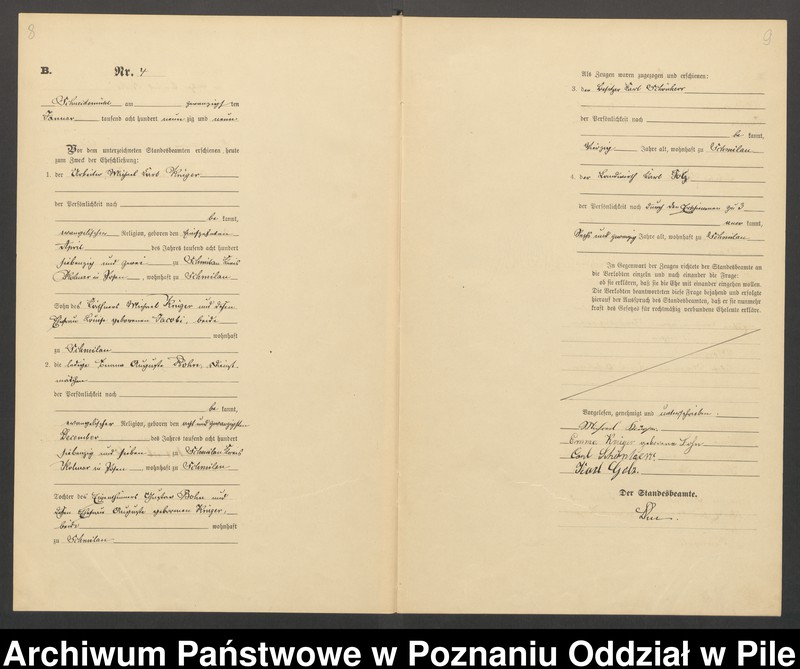 8
B. Nr. 4
Schneidemühl am zwanzigsten
Januar, tausend acht hundert neunzig und neun
Vor dem unterzeichneten Standesbeamten erschienen heute
zum Zweck der Eheschließung:
1. der Arbeiter Michael Karl Krüger
der Persönlichkeit nach
be kannt,
evangelischer Religion, geboren den fünfzehnten
April des Jahres tausend acht hundert
siebenzig und zwei zu Schmilau Kreis
Kolmar in Posen, wohnhaft zu Schmilau
Sohn des Michael Krüger und dessen
Ehefrau geborenen Jacobi, beide
wohnhaft
zu Schmilau
2. die ledige Emma Auguste Bohn, Dienst-
mädchen
der Persönlichkeit nach
be kannt,
evangelischer Religion, geboren den acht und zwanzigsten
December des Jahres tausend acht hundert
siebenzig und sieben zu Schmilau Kreis
Kolmar in Posen, wohnhaft zu Schmilau
Tochter des Eigenthümers Gustav Bohn und
dessen Ehefrau Auguste geborenen Krüger,
beide wohnhaft
zu Schmilau
9
Als Zeugen waren zugezogen und erschienen:
3. der Besitzer Karl
der Persönlichkeit nach
be kannt,
vierzig Jahre alt, wohnhaft zu Schmilau
4. der Landwirth Karl
der Persönlichkeit nach durch den zu 3
kannt,
Sechs und zwanzig Jahre alt, wohnhaft zu Schmilau
In Gegenwart der Zeugen richtete der Standesbeamte an
die Verlobten einzeln und nach einander die Frage:
ob sie erklären, daß sie die Ehe mit einander eingehen wollen.
Die Verlobten beantworteten diese Frage bejahend und erfolgte
hierauf der Ausspruch des Standesbeamten, daß er sie nunmehr
kraft des Gesetzes für rechtmäßig verbundene Eheleute erkläre.
Vorgelesen, genehmigt und unterschrieben:
Michael Krüger
Emma Krüger geborene Bohn
Carl
Karl
Der Standesbeamte.
Archiwum Państwowe w Poznaniu Oddział w Pile